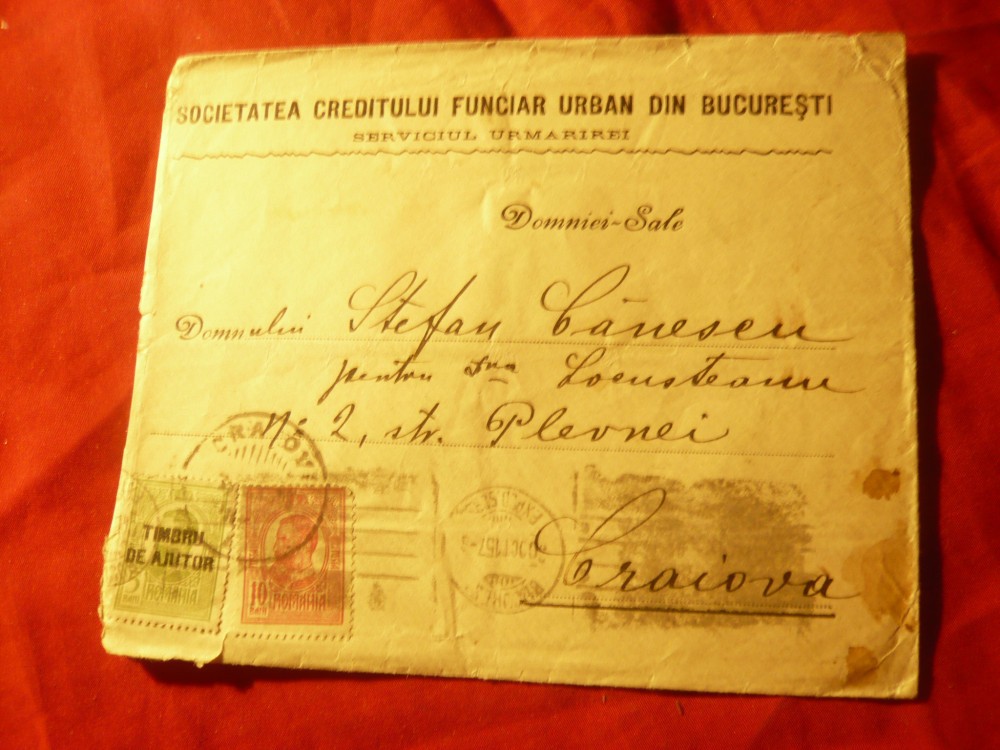 SOCIETATEA CREDITULUI FUNCIAR URBAN DIN BUCUREŞTI
SERVICIUL URMARIREI
Domniei-Sale
Domnului Stefan Cănescu
pentru Dna Locusteanu
No 2, str. Plevnei
CRAIOV
TIMBRU
DE AJUTOR
5
ROMANIA
10
BANI
ROMANIA
Craiova